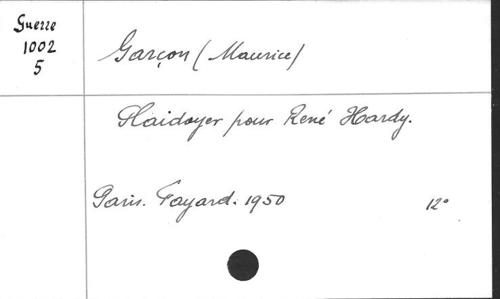 Guerre
1002
5
Garçon (Maurice)
Plaidoyer pour René Hardy.
Paris. Fayard. 1950 12°